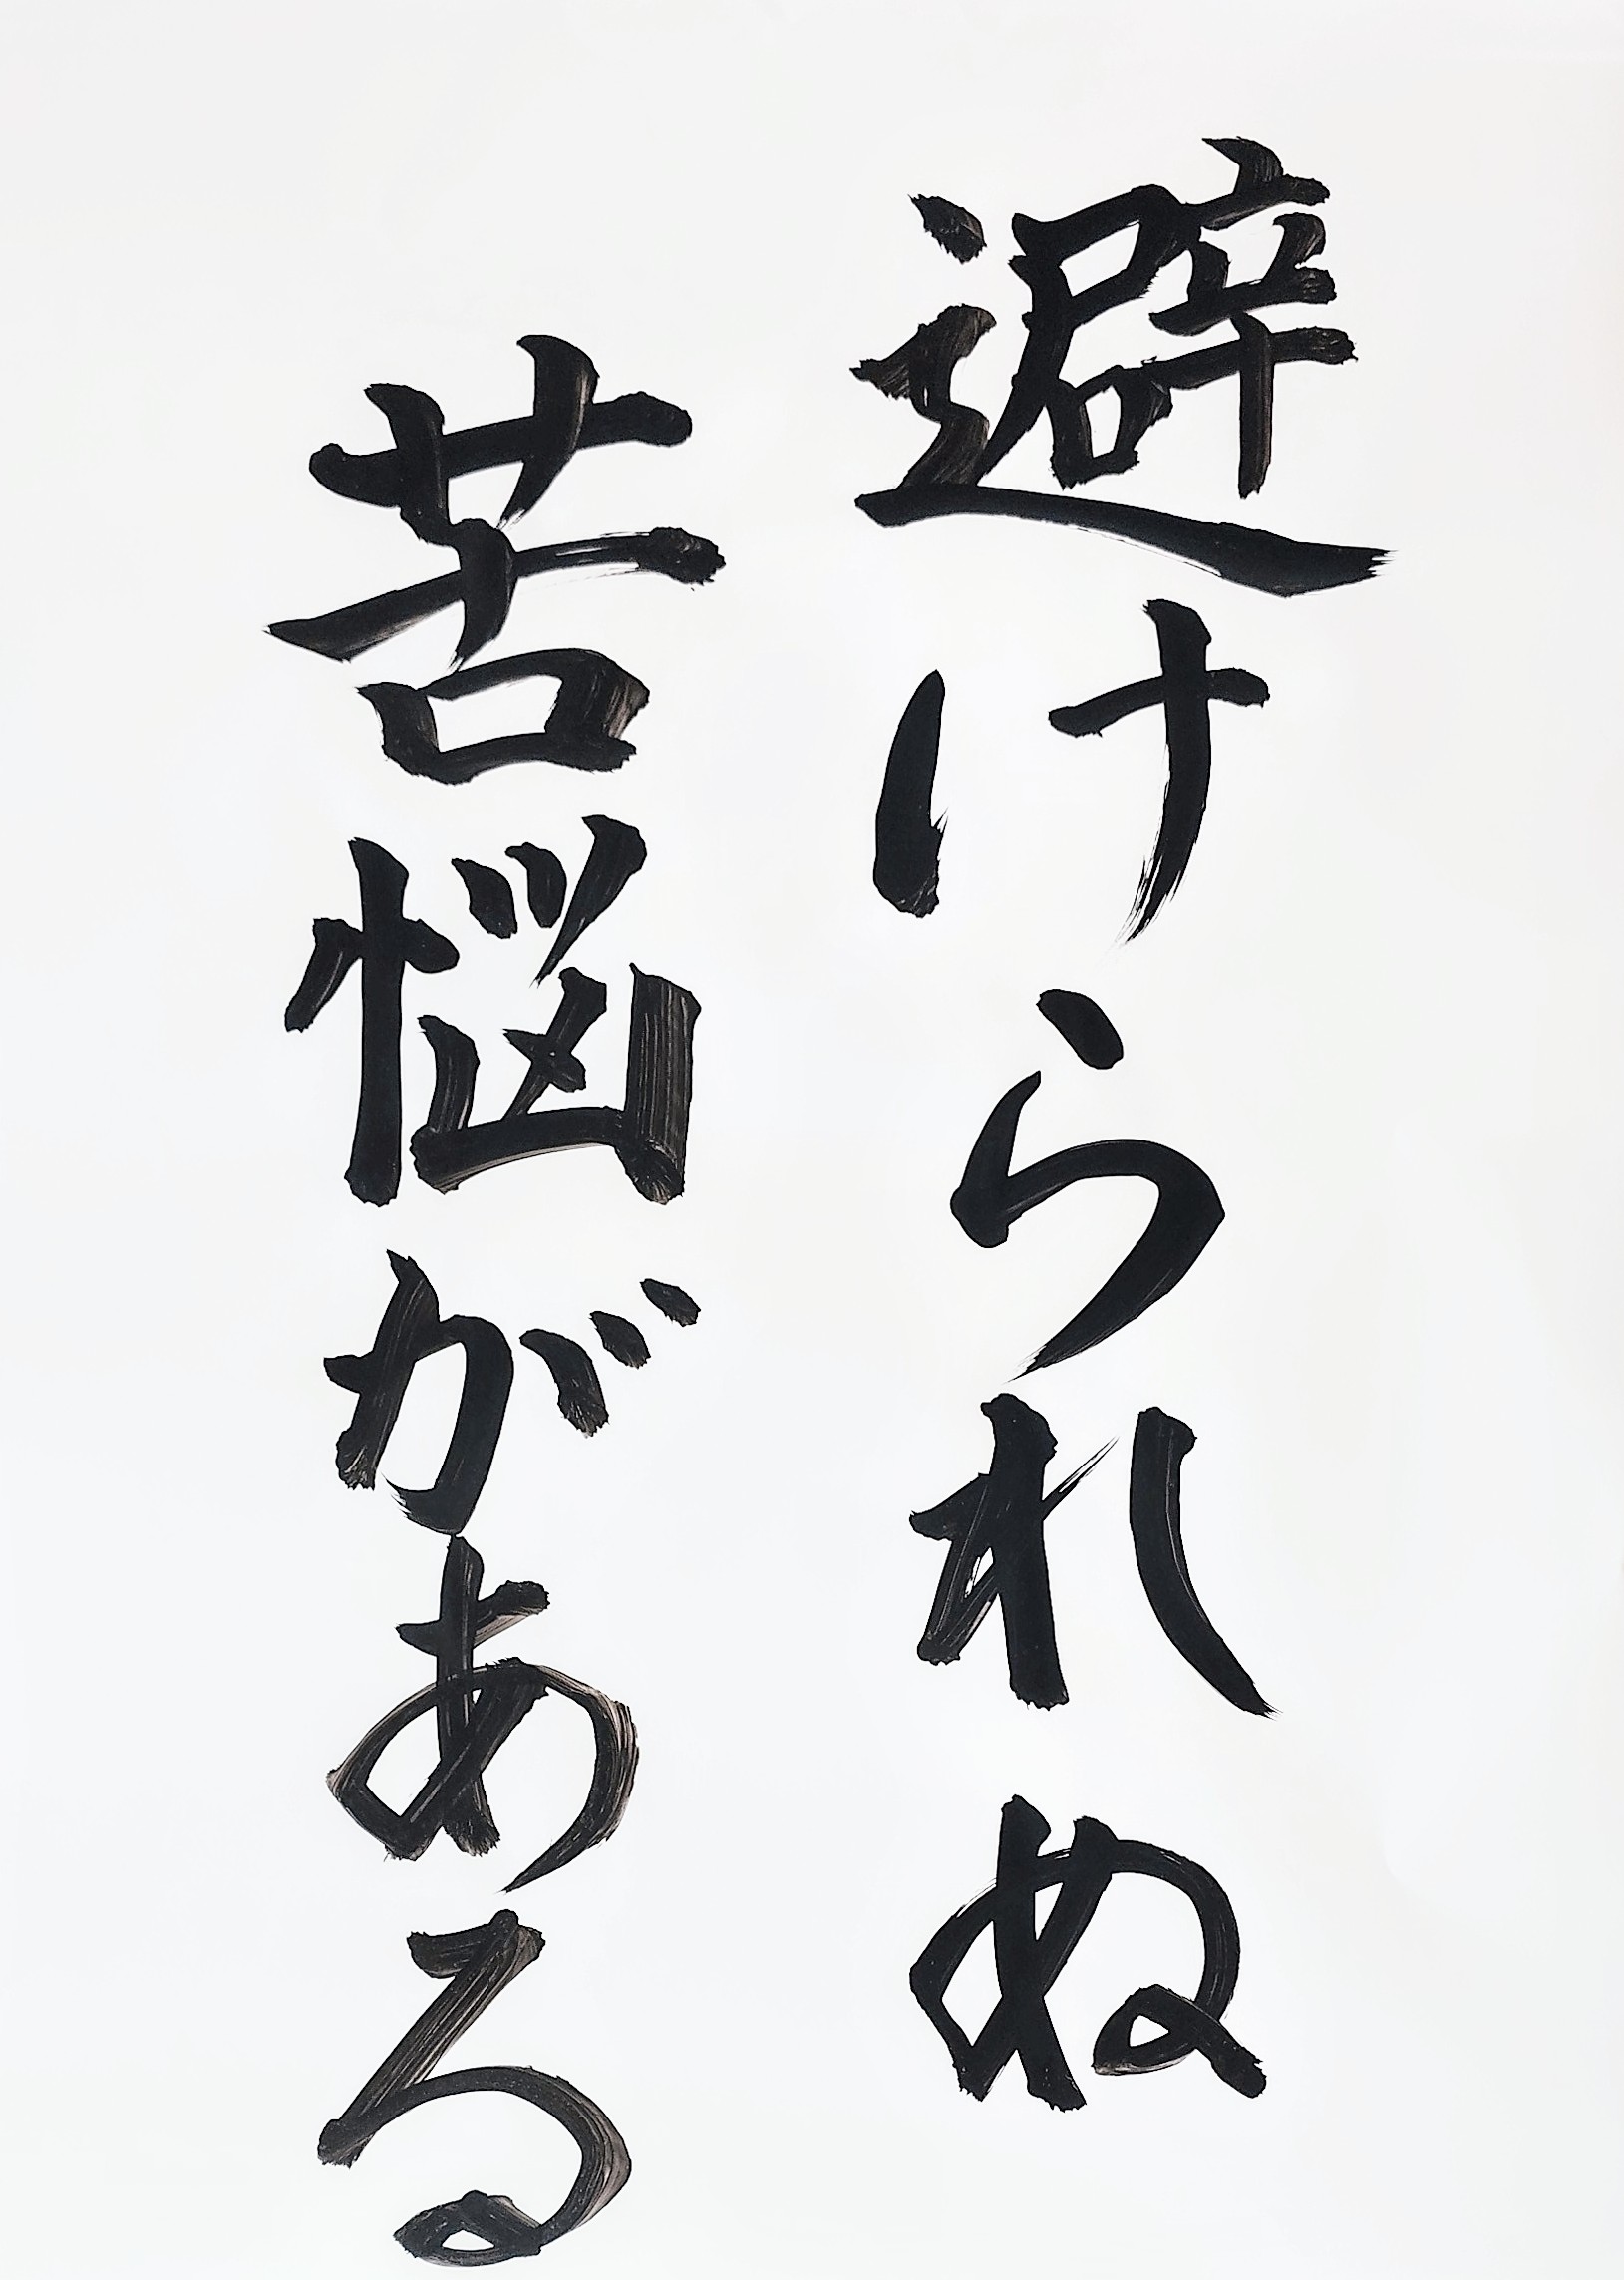 避けられぬ
苦悩がある